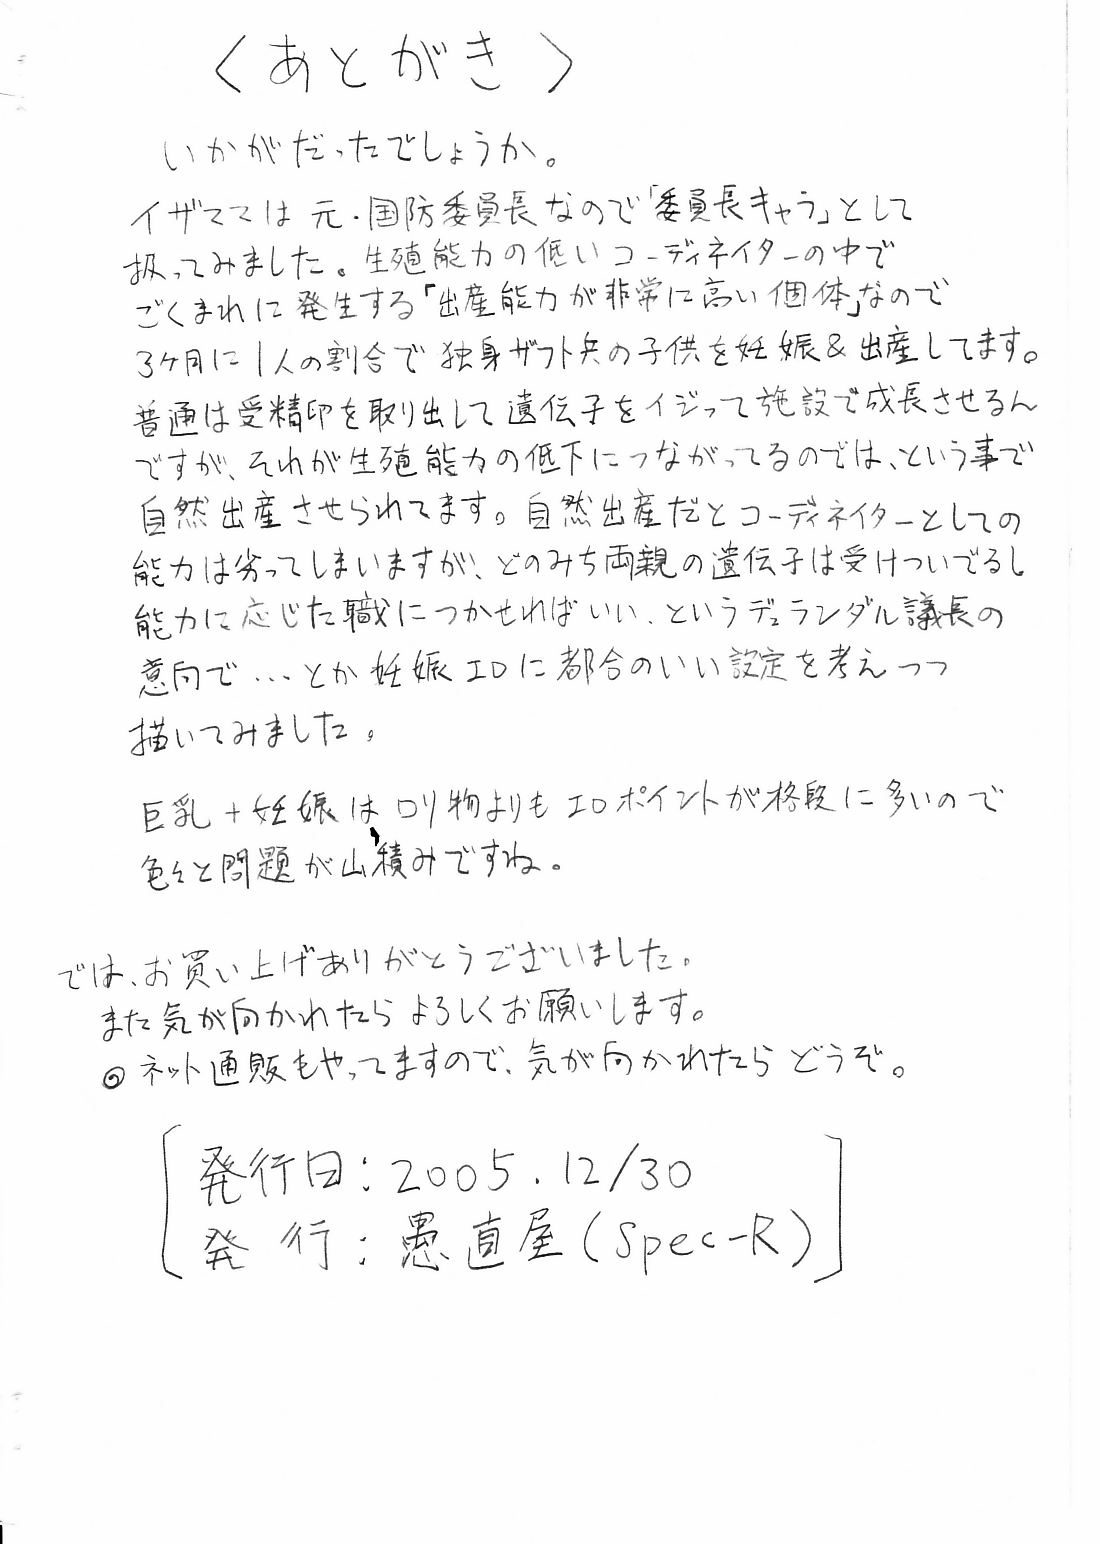 〈あとがき〉
いかがだったでしょうか。
イザママは元・国防委員長なので「委員長キャラ」として
扱ってみました。生殖能力の低いコーディネイターの中で
ごくまれに発生する「出産能力が非常に高い個体」なので
3ヶ月に1人の割合で独身ザフト兵の子供を妊娠&出産してます。
普通は受精卵を取り出して遺伝子をイジって施設で成長させるん
ですが、それが生殖能力の低下につながってるのでは、という事で
自然出産させられてます。自然出産だとコーディネイターとしての
能力は劣ってしまいますが、どのみち両親の遺伝子は受けついでるし
能力に応じた職につかせればいい、というデュランダル議長の
意向で…とか妊娠エロに都合のいい設定を考えつつ
描いてみました。
巨乳+妊娠はロリ物よりもエロポイントが格段に多いので
色々と問題が山積みですね。
では、お買い上げありがとうございました。
また気が向かれたらよろしくお願いします。
◎ネット通販もやってますので、気が向かれたらどうぞ。
発行日:2005.12/30
発行:愚直屋(Spec-R)